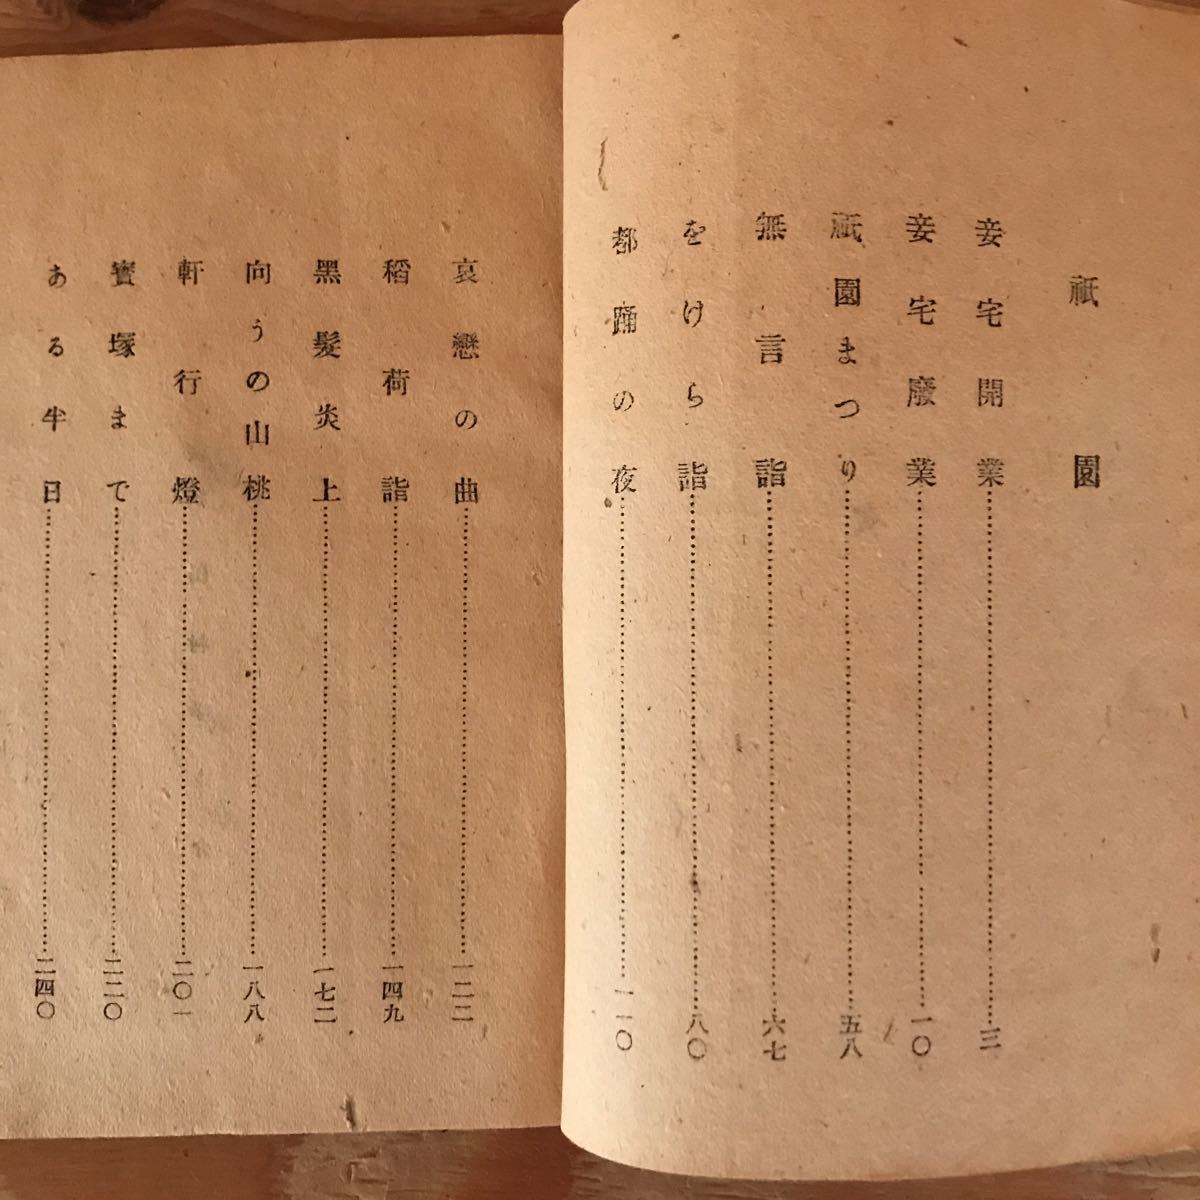 祇園
妾宅開業…………三
妾宅廢業…………一〇
祇園まつり…………五八
無言詣…………六七
をけら詣…………八〇
都踊の夜…………一一〇
哀戀の曲…………一二三
稻荷詣…………一四九
黑髮炎上…………一七二
向うの山桃…………一八八
軒行燈…………二〇一
寶塚まで…………二二〇
ある半日…………二四〇